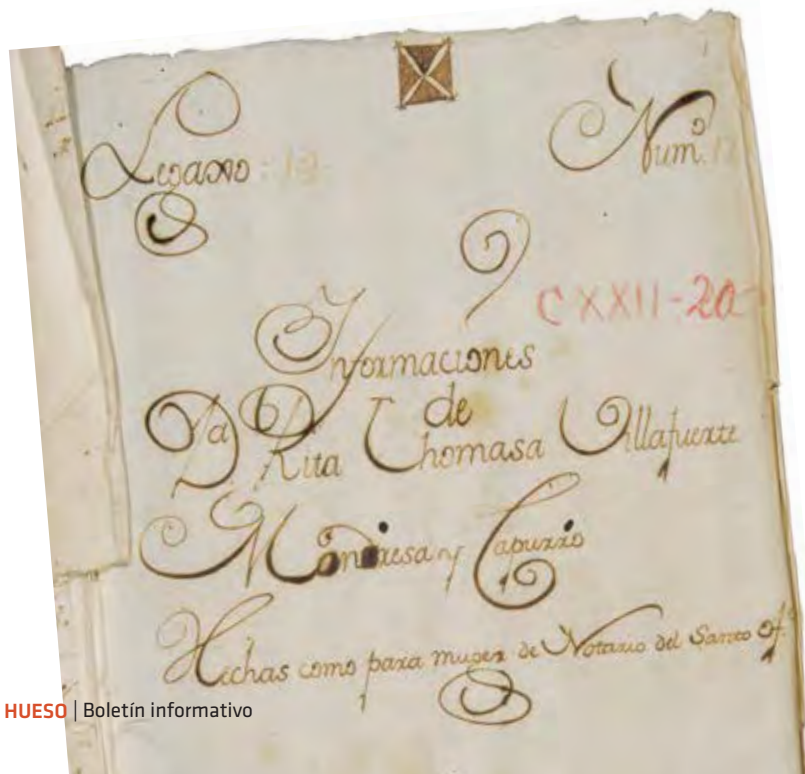 Legaxo: 19
Num.º 17
CXXII-20
Informaciones
de
Dª Rita Thomasa Villafuerte
Mondresa y Capurro
Hechas como para muger de Notario del Santo Of.º
HUESO | Boletín informativo